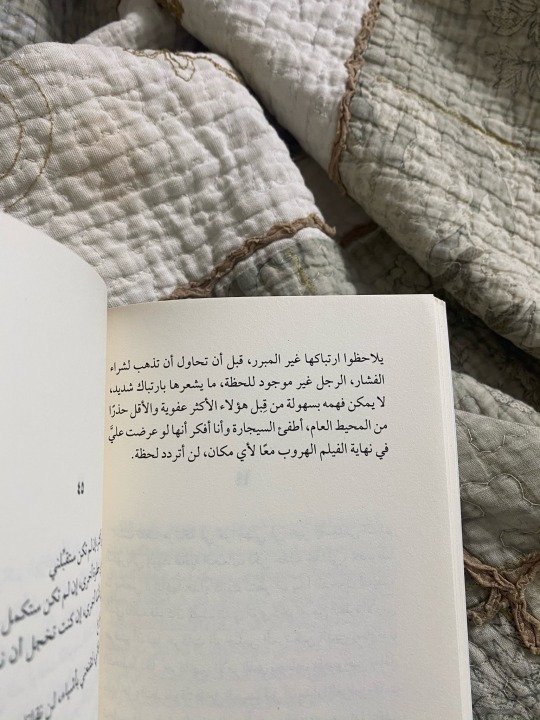 يلاحظوا ارتباكها غير المبرر، قبل أن تحاول أن تذهب لشراء
الفشار، الرجل غير موجود للحظة، ما يشعرها بارتباك شديد،
لا يمكن فهمه بسهولة من قِبل هؤلاء الأكثر عفوية والأقل حذرًا
من المحيط العام، أطفئ السيجارة وأنا أفكر أنها لو عرضت عليَّ
في نهاية الفيلم الهروب معًا لأي مكان، لن أتردد لحظة.
٤٥
إن لم تكن ستقبّلني
إن لم تكن ستكمل
إن كنت تخجل أن